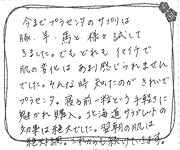 今までプラセンタのサプリは
豚、羊、馬と様々試して
きました。でもどれもイマイチで
肌の変化はあまり感じられません
でした。そんな時知ったのがきれいで
プラセンタ。寝る前一粒という手軽さに
魅かれ購入。北海道サラブレットの
効果は絶大でした。翌朝の肌は
絶好調。これからも続けていきます。